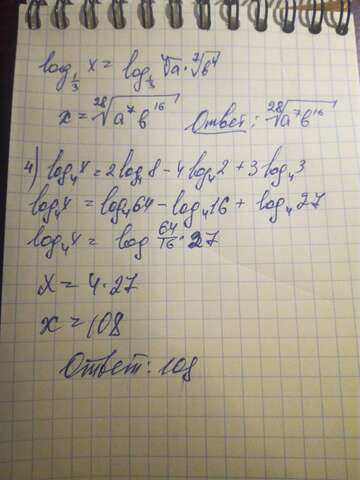 log_{1/3} x = log_{1/3} ⁴√a · ⁷√b⁴
x = ²⁸√(a⁷b¹⁶) Ответ: ²⁸√(a⁷b¹⁶)
4) log₄x = 2log₄8 - 4log₄2 + 3log₄3
log₄x = log₄64 - log₄16 + log₄27
log₄x = log 64/16 · 27
x = 4·27
x = 108
Ответ: 108